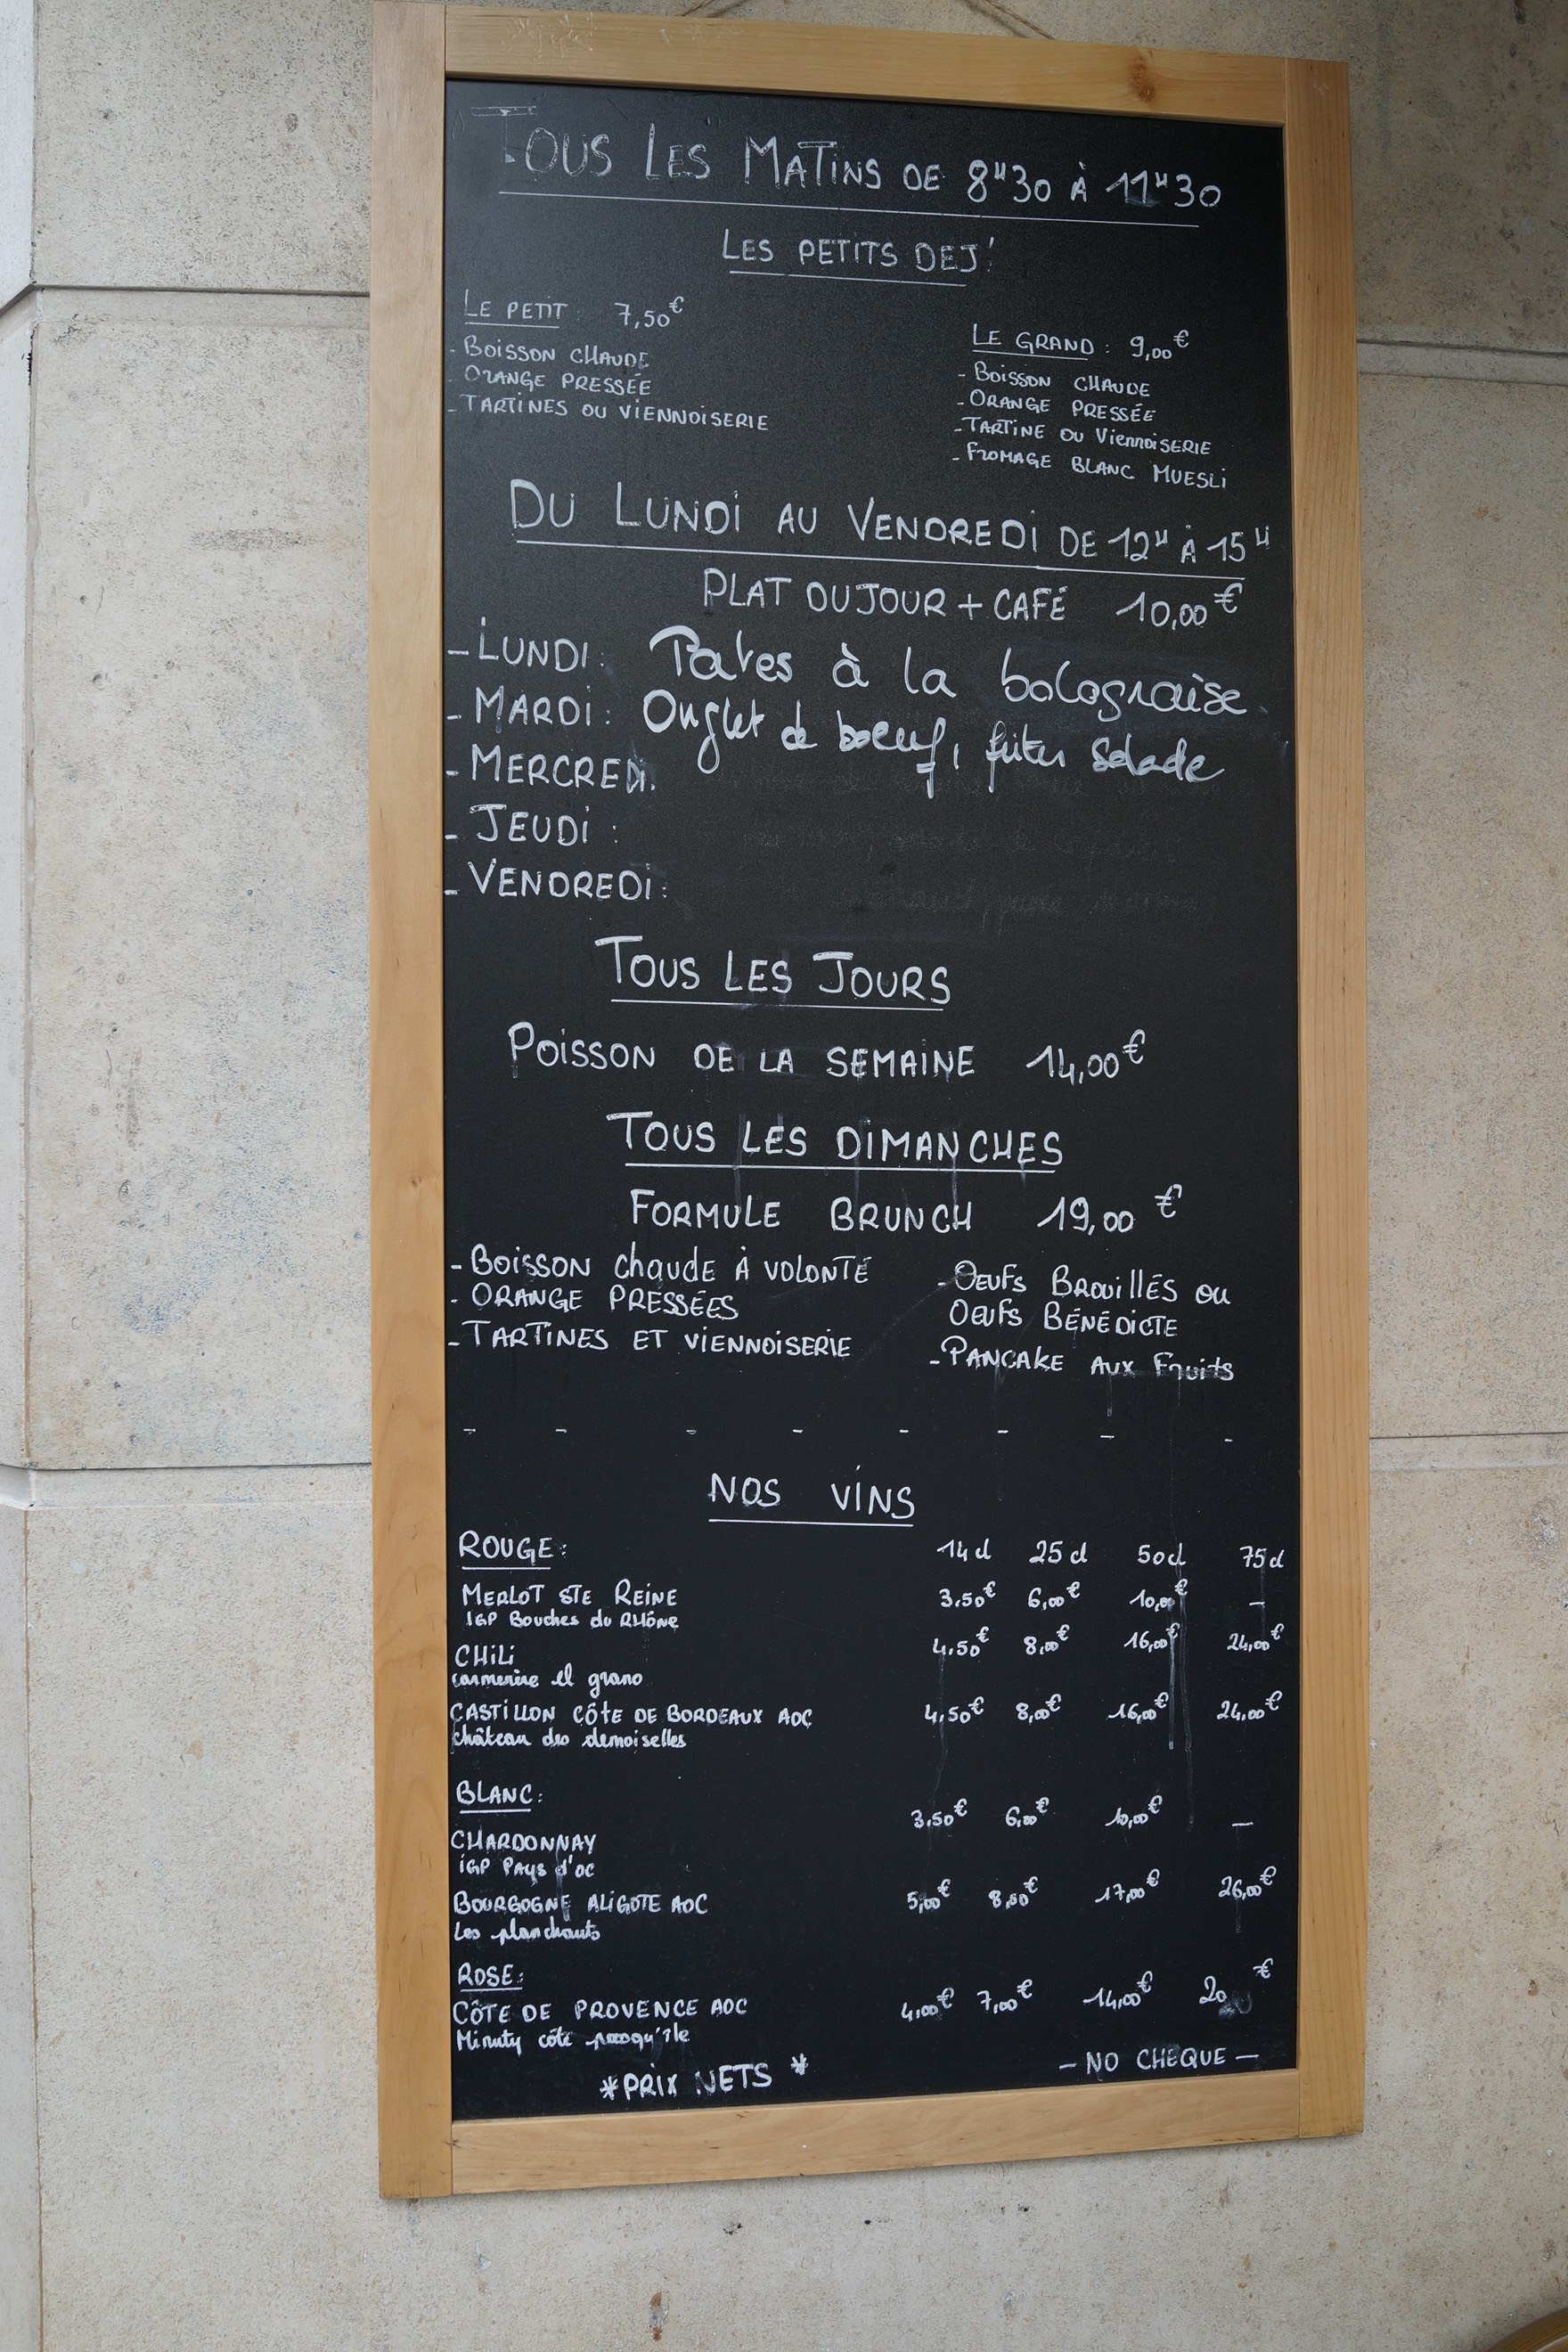 TOUS LES MATINS DE 8H30 À 11H30
LES PETITS DEJ'
LE PETIT : 7,50€
- BOISSON CHAUDE
- ORANGE PRESSÉE
- TARTINES OU VIENNOISERIE
LE GRAND : 9,00€
- BOISSON CHAUDE
- ORANGE PRESSÉE
- TARTINE OU VIENNOISERIE
- FROMAGE BLANC MUESLI
DU LUNDI AU VENDREDI DE 12H À 15H
PLAT DU JOUR + CAFÉ 10,00€
- LUNDI : Pates à la bolognaise
- MARDI : Onglet de boeuf, frites salade
- MERCREDI
- JEUDI :
- VENDREDI :
TOUS LES JOURS
POISSON DE LA SEMAINE 14,00€
TOUS LES DIMANCHES
FORMULE BRUNCH 19,00 €
- BOISSON chaude À VOLONTÉ
- ORANGE PRESSÉES
- TARTINES ET VIENNOISERIE
- OEUFS BROUILLÉS OU
OEUFS BÉNÉDICTE
- PANCAKE AUX FRUITS
NOS VINS
ROUGE : 14 cl 25 cl 50 cl 75 cl
MERLOT STE REINE 3.50€ 6,00€ 10,00€ -
IGP Bouches du RHône
CHILI 4,50€ 8,00€ 16,00€ 24,00€
carmenère el grano
CASTILLON CÔTE DE BORDEAUX AOC 4,50€ 8,00€ 16,00€ 24,00€
château des demoiselles
BLANC :
CHARDONNAY 3,50€ 6,00€ 10,00€ -
IGP PAYS d'OC
BOURGOGNE ALIGOTE AOC 5,00€ 8,50€ 17,00€ 26,00€
Les planchants
ROSE :
CÔTE DE PROVENCE AOC 4,00€ 7,00€ 14,00€ 20 €
Minuty côté presqu'île
*PRIX NETS *
- NO CHEQUE -